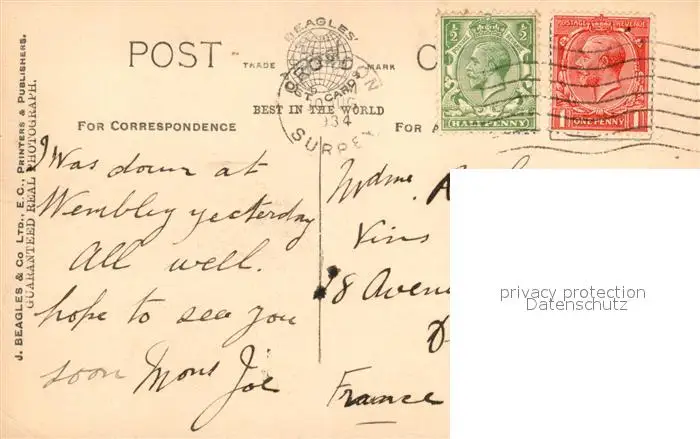 POST C
BEAGLES'
TRADE MARK
POST CARDS
CROYDON
BEST IN THE WORLD
1934
SURREY
FOR CORRESPONDENCE
FOR A
J. BEAGLES & Co LTD., E.C., PRINTERS & PUBLISHERS.
GUARANTEED REAL PHOTOGRAPH.
½ ½
HALFPENNY
POSTAGE REVENUE
1 ONE PENNY 1
Was down at
Wembley yesterday
All well.
hope to see you
soon Mons Joe
Mdme. A
Vins
18 Avenu
D
France
privacy protection
Datenschutz